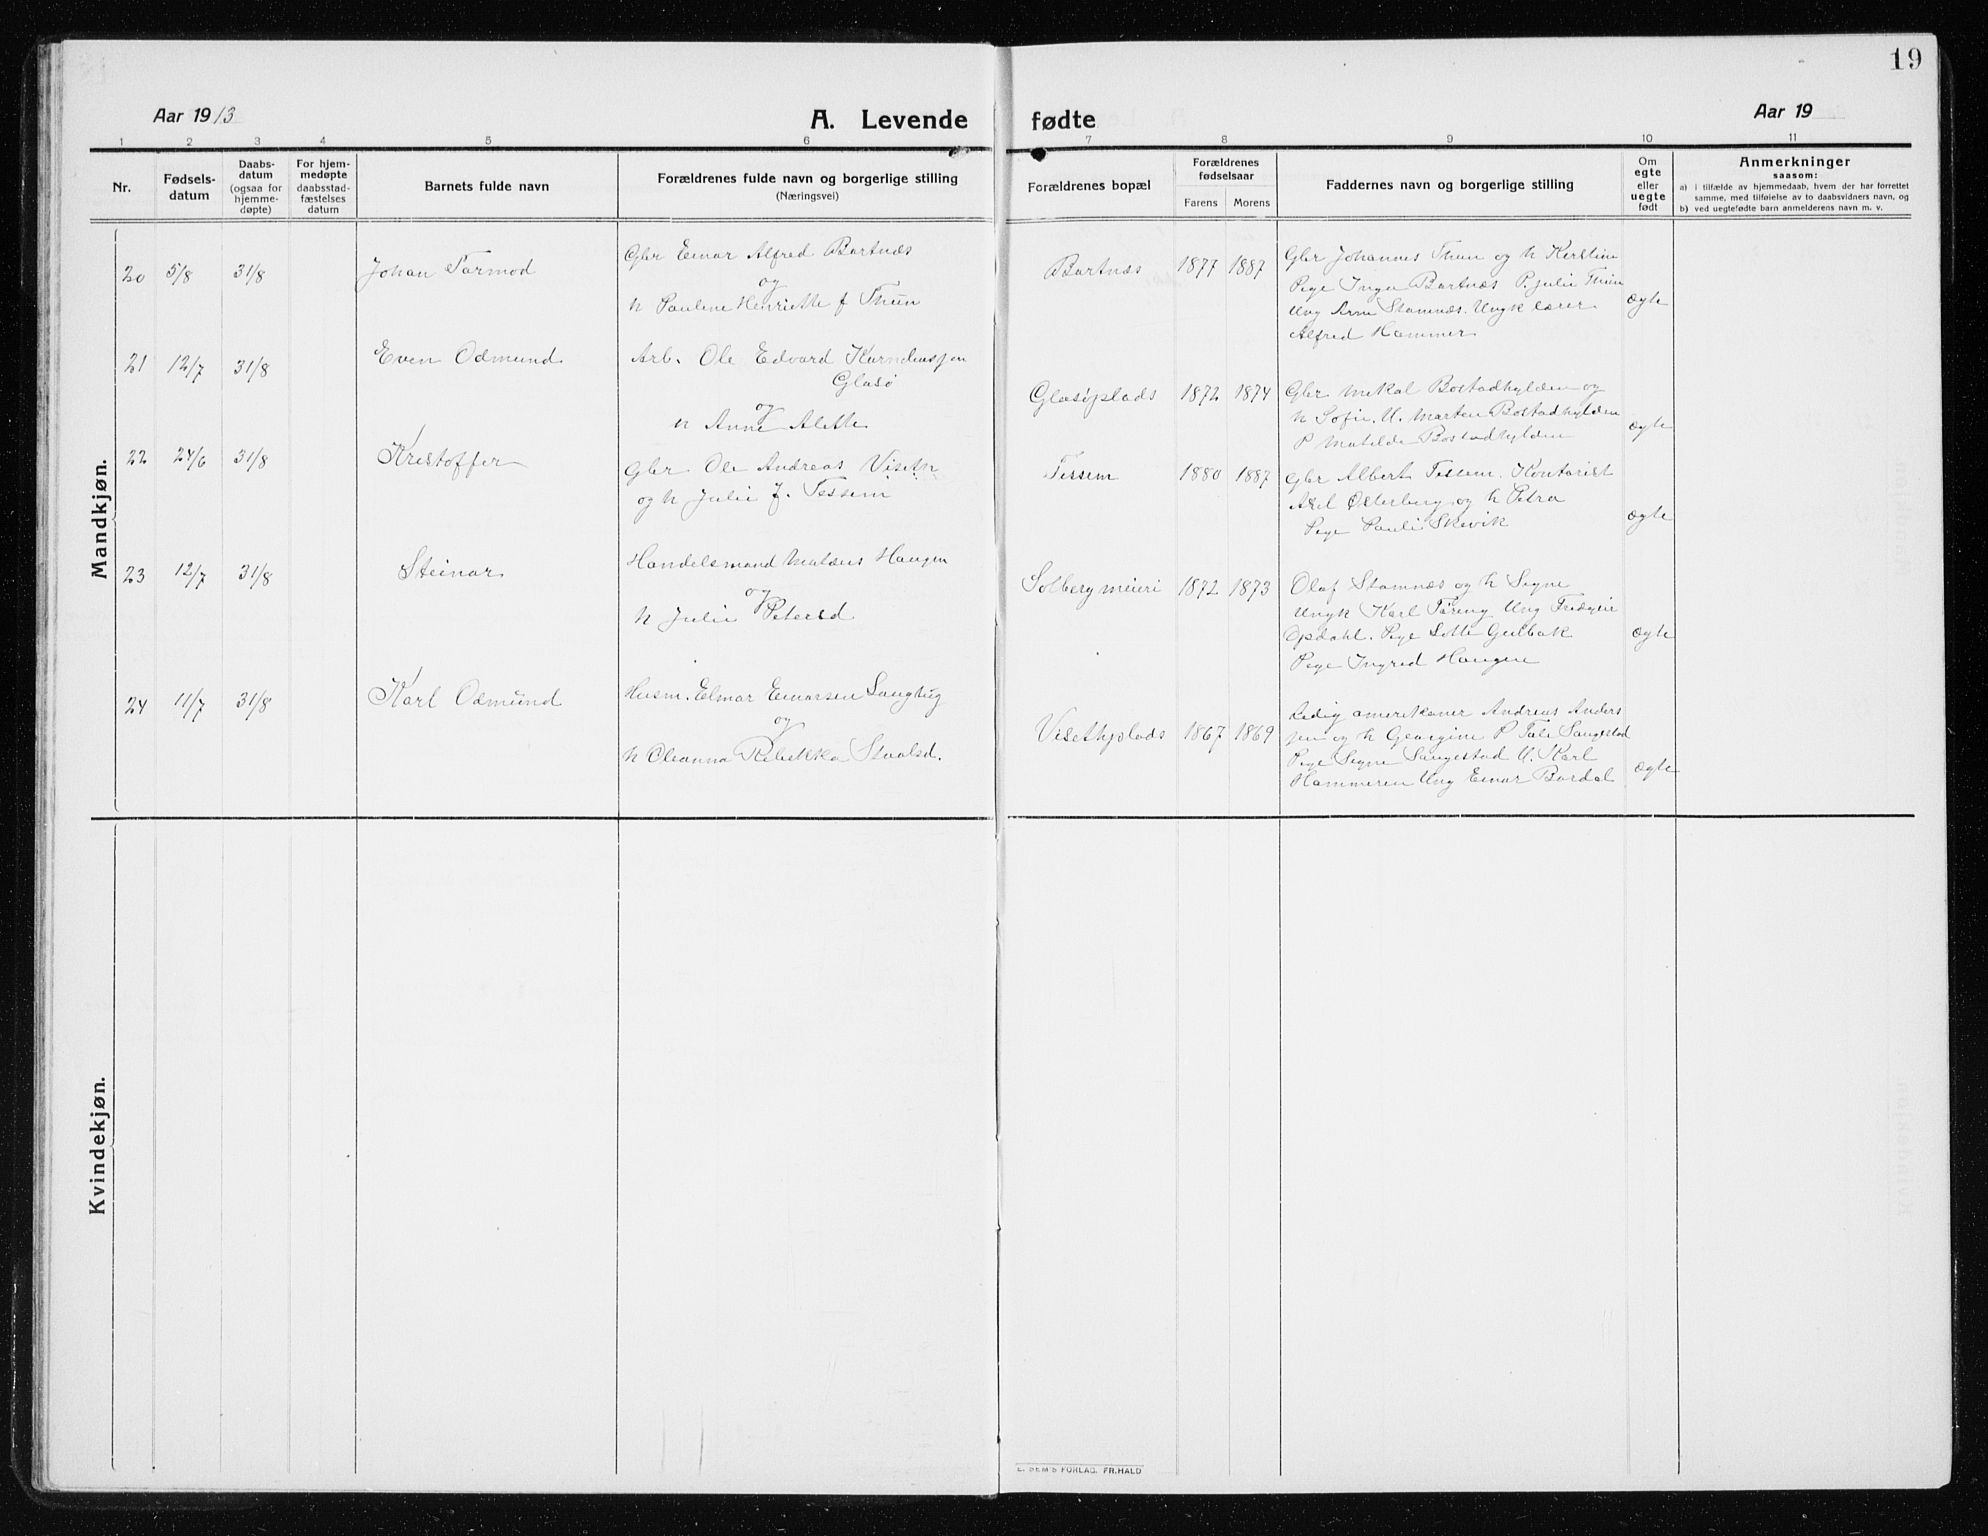 19
Aar 1913
A. Levende fødte
Aar 19
1 2 3 4 5 6 7 8 9 10 11
Nr.
Fødsels-
datum
Daabs-
datum
(ogsaa for
hjemme-
døpte)
For hjem-
medøpte
daabsstad-
fæstelses
datum
Barnets fulde navn
Forældrenes fulde navn og borgerlige stilling
(Næringsvei)
Forældrenes bopæl
Forældrenes
fødselsaar
Farens Morens
Faddernes navn og borgerlige stilling
Om
egte
eller
uegte
født
Anmerkninger
saasom:
a) i tilfælde av hjemmedaab, hvem der har forrettet
samme, med tilføielse av to daabsvidners navn, og
b) ved uegtefødte barn anmelderens navn m. v.
Mandkjøn.
20 5/8 31/8 Johan Tormod
Gbr Einar Alfred Bartnæs
og
h Pauline Henriette f Thun
Bartnæs 1877 1887
Gbr Johannes Thun og h Kirstine
Pige Inga Bartnæs P. Julie Thun
Ung Arne Stamnæs. Ungk lærer
Alfred Hammer
ægte
21 12/7 31/8 Even Odmund
Arb. Ole Edvard Korneliussen
Glasø
og
h Anne Alette
Glasøplads 1872 1874
Gbr Mekal Bostadhylden og
h Sofie. U. Morten Bostadhylden
P Matilde Bostadhylden
ægte
22 24/6 31/8 Kristoffer
Gbr Ole Andreas Viseth
og h Julie f. Tessem
Tessem 1880 1887
Gbr Albert Tessem. Kontorist
Axel Østerberg og h Petra
Pige Pauli Skevik
ægte
23 12/7 31/8 Steinar
Handelsmand Haugen
og
h Julie Petersd
Solberg meieri 1872 1873
Olaf Stamnæs og h Signe
Ungk Karl Føreng Ung
Opdahl. Pige Lotte Gulbak
Pige Ingrid Haugen
ægte
24 11/7 31/8 Karl Odmund
Husm. Elmar Einarsen
og
h Oleanna Rebekka
Visethplads 1867 1869
Ledig amerikaner Andreas Anders
sen og h Georgine P Sangestad
Pige Signe Sangestad U. Karl
Hammeren Ung Einar Bardal
ægte
Kvindekjøn.
E. SEM'S FORLAG. FR.HALD